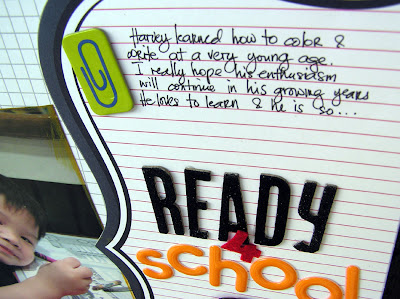 Harvey learned how to color &
write at a very young age.
I really hope his enthusiasm
will continue in his growing years
He loves to learn & he is so...
READY
4
school